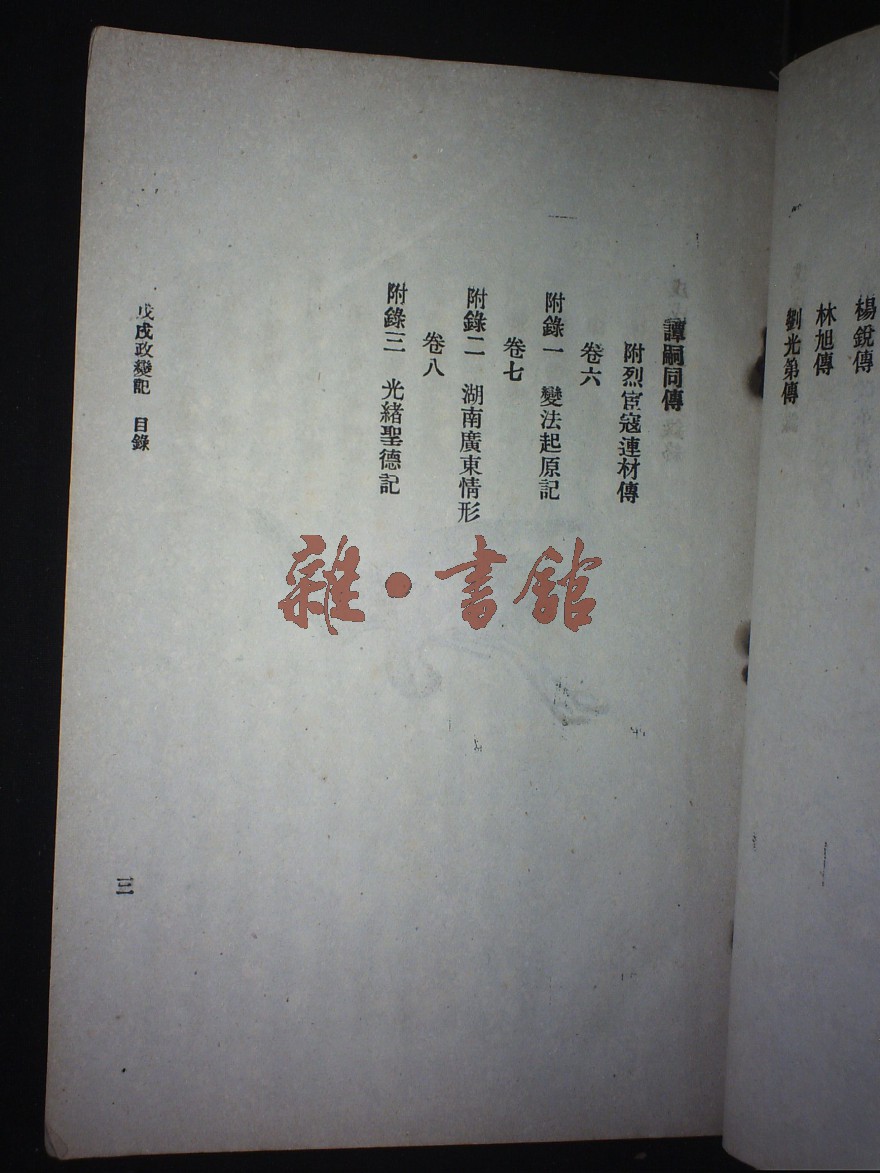 楊銳傳
林旭傳
劉光第傳
譚嗣同傳
附烈宦寇連材傳
卷六
附錄一 變法起原記
卷七
附錄二 湖南廣東情形
卷八
附錄三 光緒聖德記
戊戌政變記 目錄
三
雜·書館